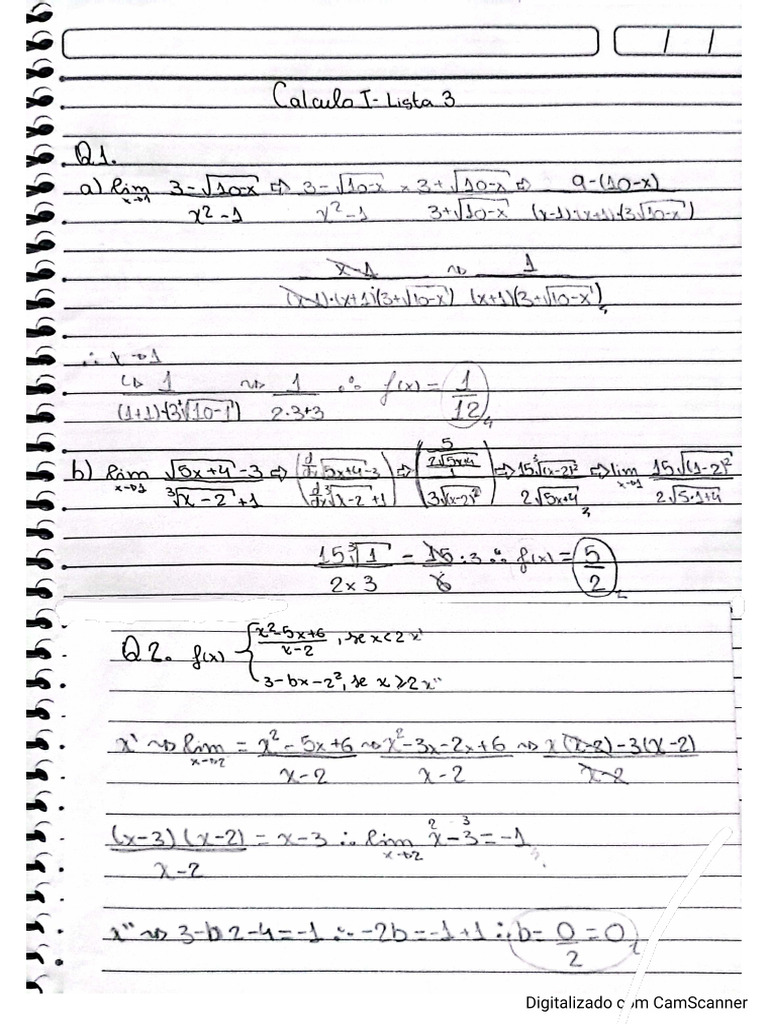 Calculo I - Lista 3
Q1.
a) lim x→1 3-√10-x / x²-1 ⇨ 3-√10-x / x²-1 × 3+√10-x / 3+√10-x ⇨ 9-(10-x) / (x-1)·(x+1)·(3√10-x)
x-1 / (x-1)·(x+1)(3+√10-x) ⇝ 1 / (x+1)(3+√10-x)
∴ x→1
↳ 1 / (1+1)·(3√10-1) ⇝ 1 / 2·3+3 ∴ f(x) = 1/12
b) lim x→1 √5x+4-3 / ∛x-2+1 ⇨ (d/dx √5x+4-3 / d/dx ∛x-2+1) ⇨ (5/2√5x+4 / 1/3√(x-2)²) ⇨ 15∛(x-2)² / 2√5x+4 ⇨ lim x→1 15√(1-2)² / 2√5·1+4
15∛1 / 2×3 = 15/6 :3 ∴ f(x) = 5/2
Q2. f(x) { x²-5x+6 / x-2, se x<2 x'
3-bx-2², se x≥2 x''
x' ⇝ lim x→2 = x²-5x+6 / x-2 ⇝ x²-3x-2x+6 / x-2 ⇝ x(x-2)-3(x-2) / x-2
(x-3)(x-2) / x-2 = x-3 ∴ lim x→2 x-3 = -1
x'' ⇝ 3-b2-4=-1 ∴ -2b=-1+1 ∴ b= 0/2 = 0
Digitalizado com CamScanner